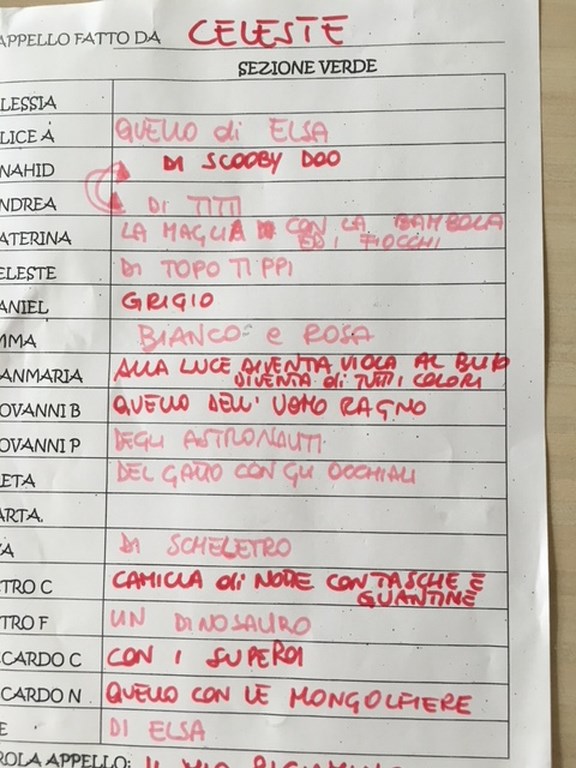 APPELLO FATTO DA CELESTE
SEZIONE VERDE
LESSIA
LICE A QUELLO di ELSA
NAHID DI SCOOBY DOO
NDREA DI TITTI
ATERINA LA MAGLIA CON LA BAMBOLA
ED I FIOCCHI
ELESTE DI TOPO TIPPI
ANIEL GRIGIO
MMA BIANCO e ROSA
ANMARIA ALLA LUCE DIVENTA VIOLA AL BUIO
DIVENTA di TUTTI I COLORI
OVANNI B QUELLO DELL' UOMO RAGNO
OVANNI P DEGLI ASTRONAUTI
ETA DEL GATTO CON GLI OCCHIALI
ARTA.
A DI SCHELETRO
TRO C CAMICIA di NODE CON TASCHE E
GUANTINE
TRO F UN DINOSAURO
CCARDO C CON I SUPEROI
CCARDO N QUELLO CON LE MONGOLFIERE
E DI ELSA
ROLA APPELLO: IL MIO